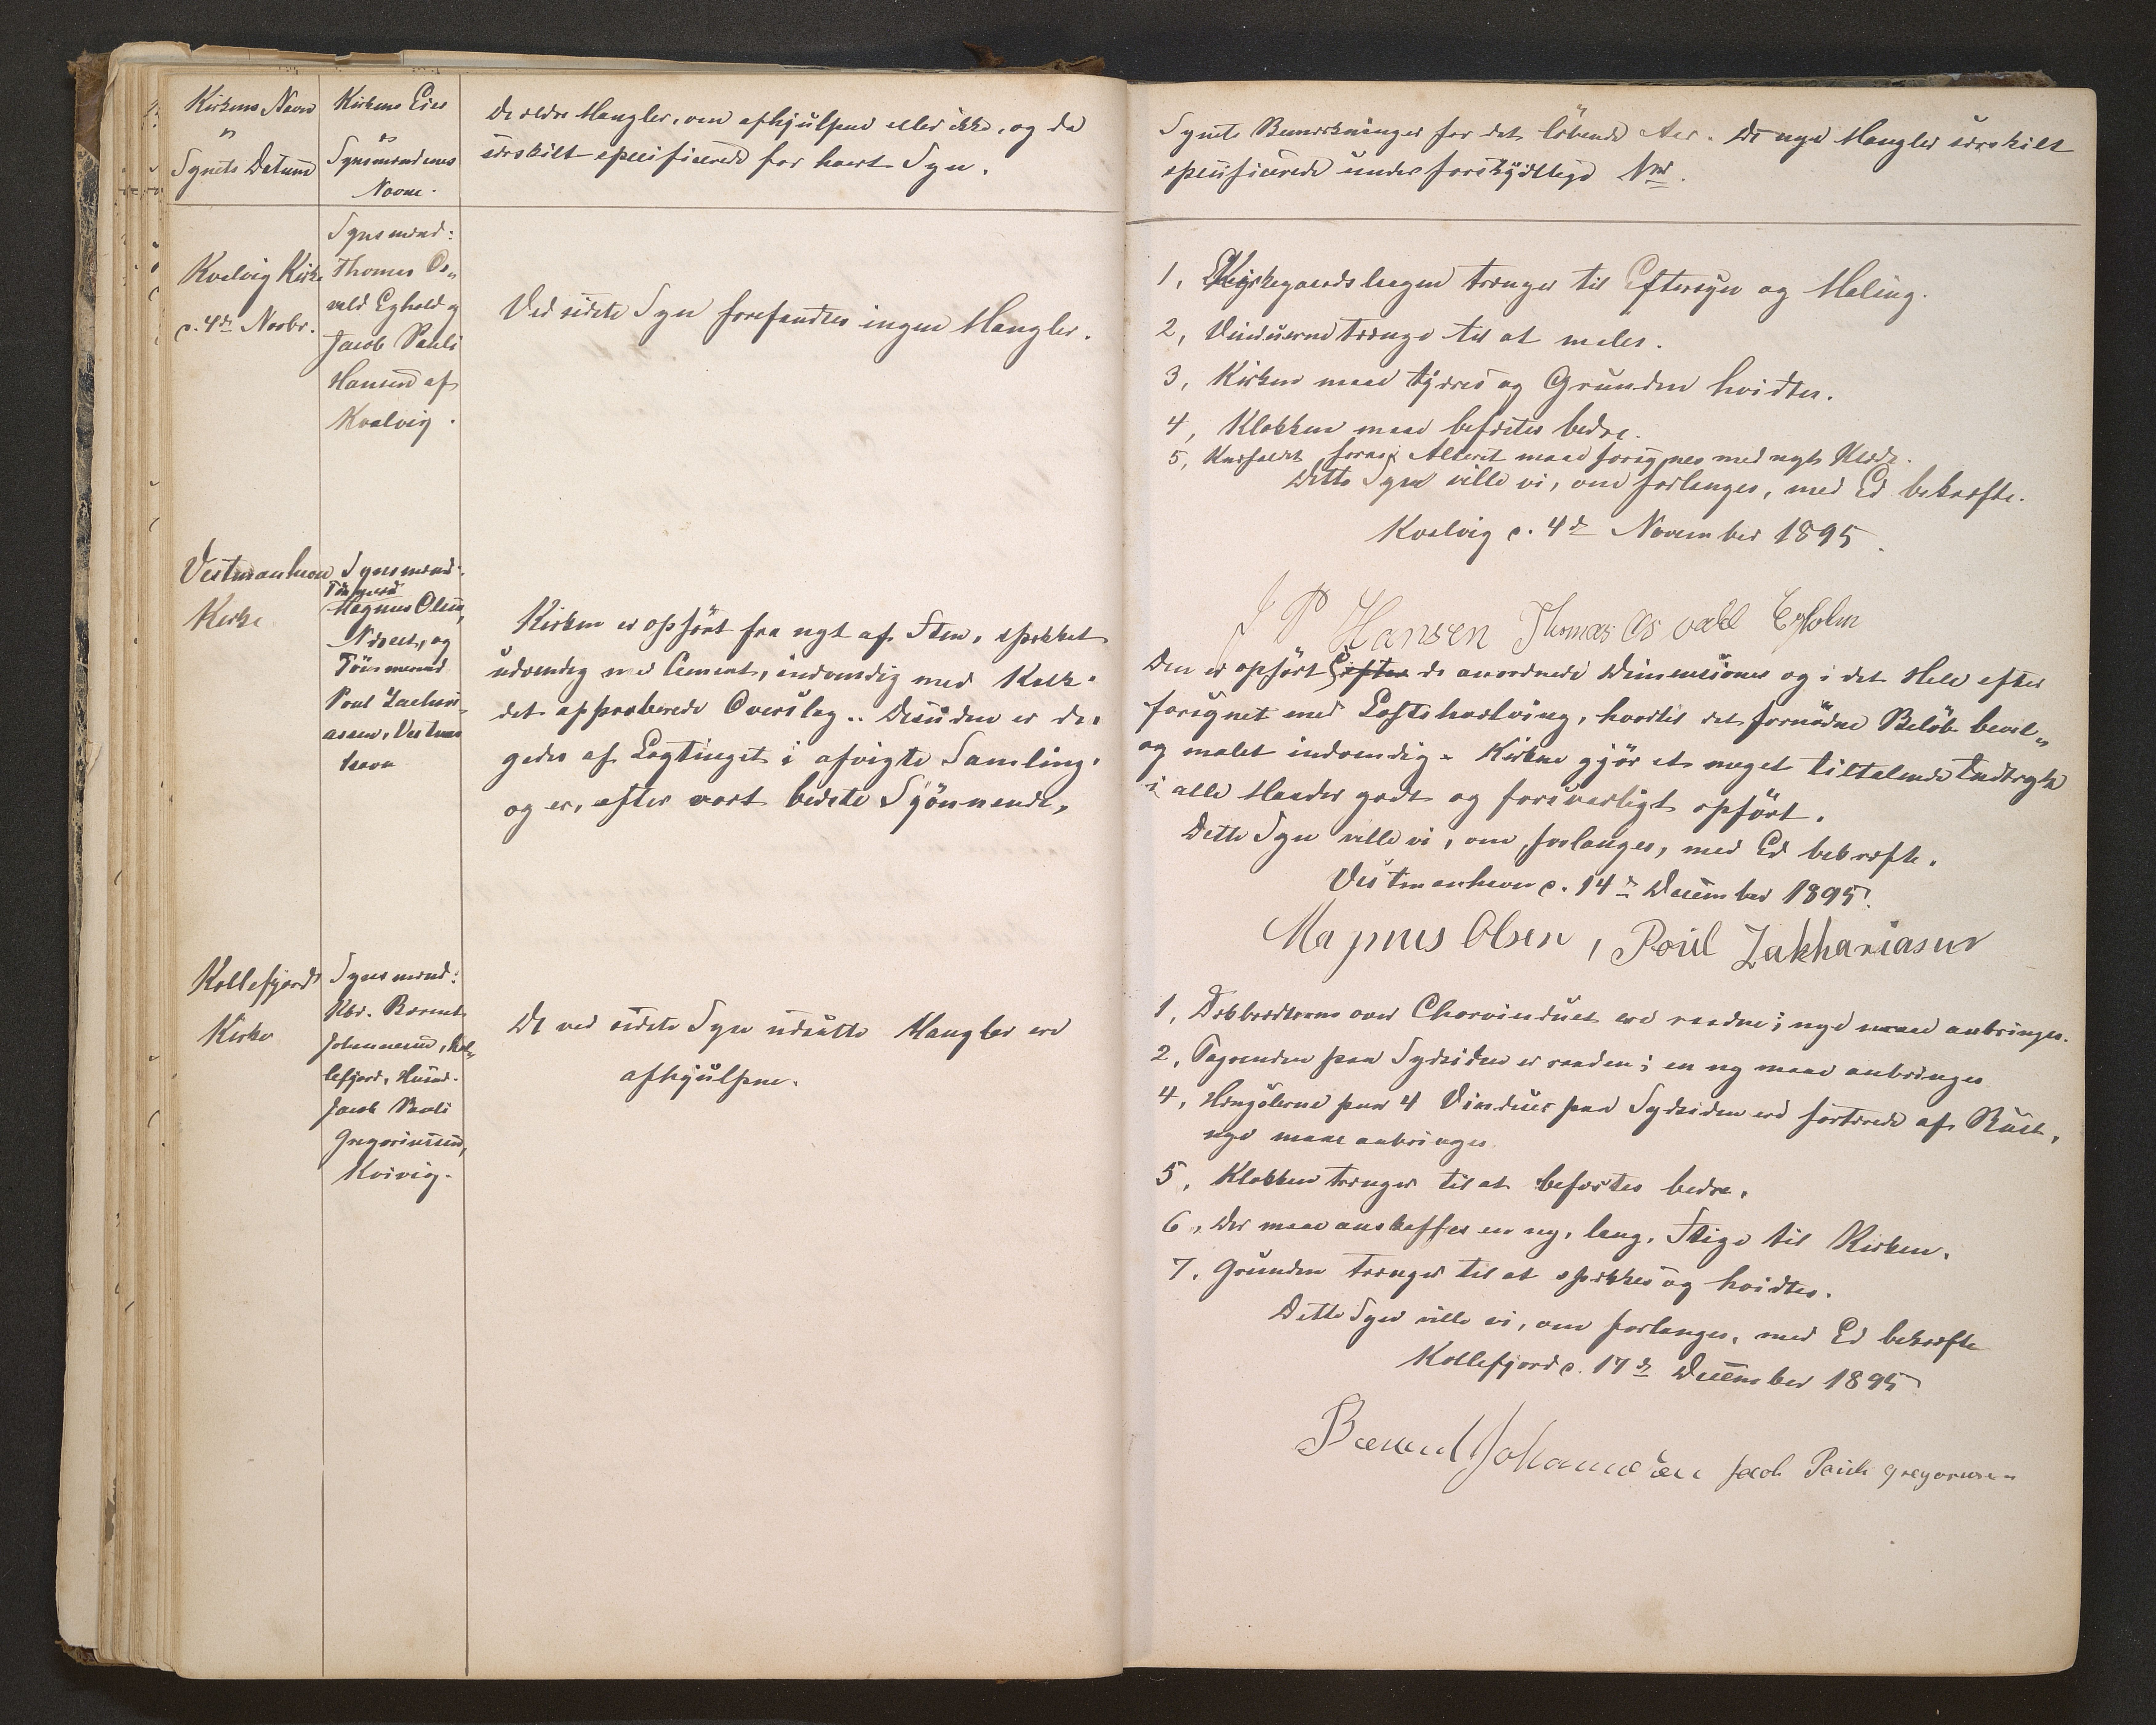 Kirkens Navn
og
Synets Datum
Kirkens Eier
og
Synsmændenes
Navne.
De ældre Mangler, om afhjulpne eller ikke, og da
særskilt specificerede for hvert Syn.
Kvalvig Kirke
d. 4de Novbr.
Synsmænd:
Thomas Os„
vald Egholm og
Jacob Pauli
Hansen af
Kvalvig.
Ved sidste Syn forefandtes ingen Mangler.
Vestmanhavn
Kirke
Synsmænd:
Tömmermd
Magnus Olsen,
og
Tömmermd
Poul Zachari„
assen, Vestman
havn
Kirken er opført fra nyt af Sten, spækket
udvendig med Cement, indvendig med Kalk.
det approberede Overslag. Desuden er de.
gedes af Lagtinget i afvigte Samling.
og er, efter vort bedste Skjønnende,
Kollefjords
Kirke
Synsmænd:
Kbd. Barent
Johannesen, Kol„
lefjord, Husmd.
Jacob Pauli
Gregoriussen,
Kvivig.
De ved sidste Syn udsatte Mangler ere
afhjulpne.
Synets Bemærkninger for det løbende Aar. De nye Mangler særskilt
specificerede under forskjellige Nre.
1, Kirkegaardslaagen trænger til Eftersyn og Maling.
2, Vinduerne trænge til at males.
3, Kirken maa tjæres og Grunden hvidtes.
4, Klokken maa befæstes bedre.
5, Knæfaldet foran Alteret maa forsynes med nyt Klæde.
Dette Syn ville vi, om forlanges, med Ed bekræfte.
Kvalvig d. 4de November 1895.
J P Hansen Thomas Osvald Egholm
Den er opført efter de anordnede Dimensioner og i det Hele efter
forsynet med Loftshvælving, hvortil det fornødne Beløb bevil„
og malet indvendig. Kirken gjør et meget tiltalende Indtryk
i alle Maader godt og forsvarligt opført.
Dette Syn ville vi, om forlanges, med Ed bekræfte.
Vestmanhavn d. 14de December 1895.
Magnus Olsen, Poul Zakhariasen
1, Dækbrædderne over Chorvinduet ere raadne; nye maa anbringes.
2, Tagrenden paa Sydsiden er raaden; en ny maa anbringes
4, Hængslerne paa 4 Vinduer paa Sydsiden ere fortærede af Rust,
nye maa anbringes
5, Klokken trænger til at befæstes bedre.
6, Der maa anskaffes en ny, lang, Stige til Kirken.
7, Grunden trænger til at spækkes og hvidtes.
Dette Syn ville vi, om forlanges, med Ed bekræfte
Kollefjord d. 17de December 1895
Barend Johannesen Jacob Pauli Gregoriussen